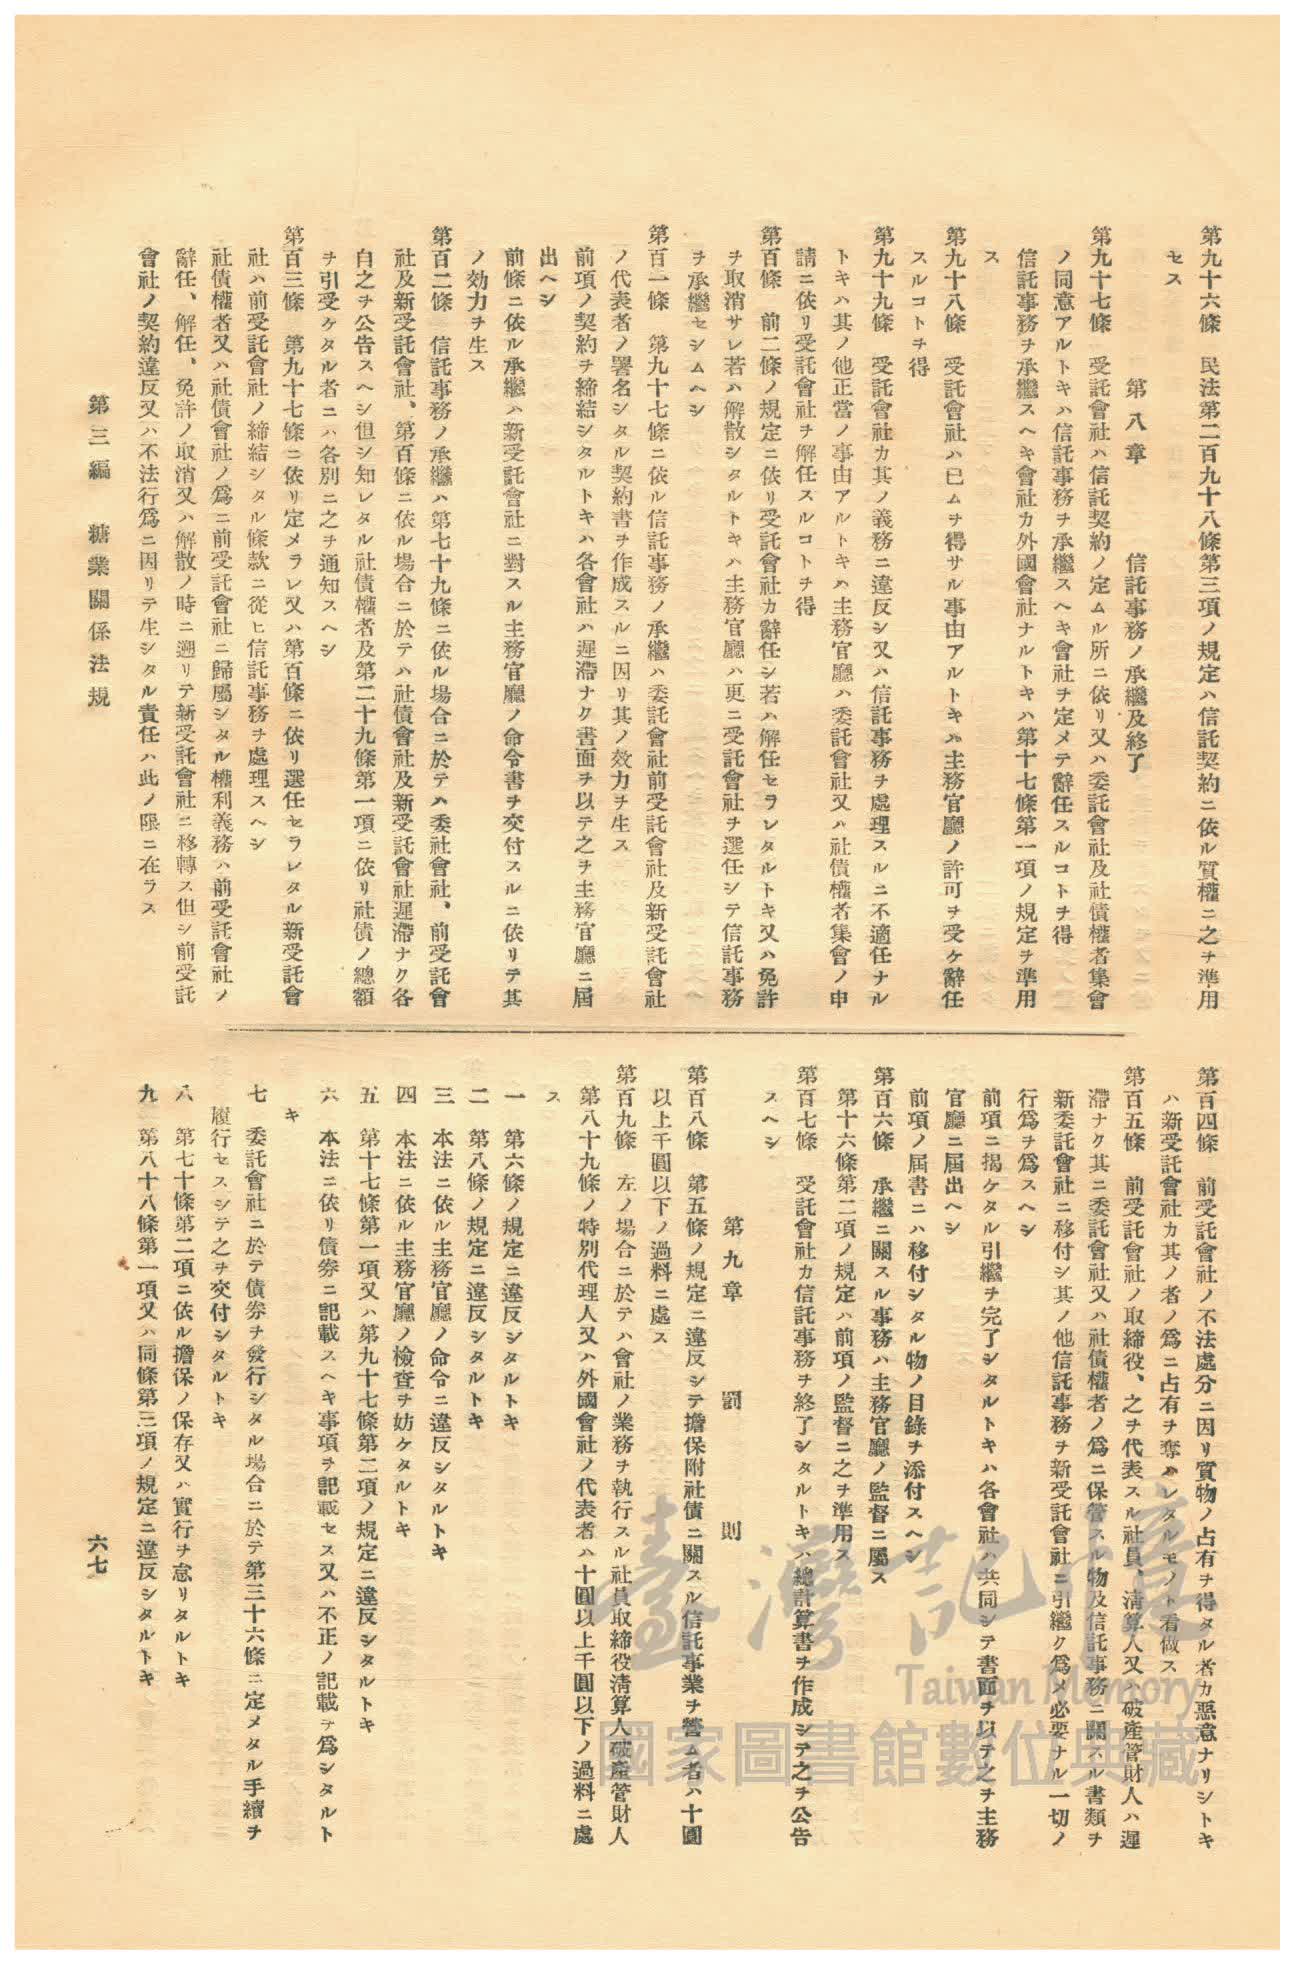 第九十六條　民法第二百九十八條第三項ノ規定ハ信託契約ニ依ル質權ニ之ヲ準用
セス
第八章　信託事務ノ承繼及終了
第九十七條　受託會社ハ信託契約ノ定ムル所ニ依リ又ハ委託會社及社債權者集會
ノ同意アルトキハ信託事務ヲ承繼スヘキ會社ヲ定メテ辭任スルコトヲ得
信託事務ヲ承繼スヘキ會社カ外國會社ナルトキハ第十七條第一項ノ規定ヲ準用
ス
第九十八條　受託會社ハ已ムヲ得サル事由アルトキハ主務官廳ノ許可ヲ受ケ辭任
スルコトヲ得
第九十九條　受託會社カ其ノ義務ニ違反シ又ハ信託事務ヲ處理スルニ不適任ナル
トキハ其ノ他正當ノ事由アルトキハ主務官廳ハ委託會社又ハ社債權者集會ノ申
請ニ依リ受託會社ヲ解任スルコトヲ得
第百條　前二條ノ規定ニ依リ受託會社カ辭任シ若ハ解任セラレタルトキ又ハ免許
ヲ取消サレ若ハ解散シタルトキハ主務官廳ハ更ニ受託會社ヲ選任シテ信託事務
ヲ承繼セシムヘシ
第百一條　第九十七條ニ依ル信託事務ノ承繼ハ委託會社前受託會社及新受託會社
ノ代表者ノ署名シタル契約書ヲ作成スルニ因リ其ノ效力ヲ生ス
前項ノ契約ヲ締結シタルトキハ各會社ハ遲滯ナク書面ヲ以テ之ヲ主務官廳ニ屆
出ヘシ
前條ニ依ル承繼ハ新受託會社ニ對スル主務官廳ノ命令書ヲ交付スルニ依リテ其
ノ効力ヲ生ス
第百二條　信託事務ノ承繼ハ第七十九條ニ依ル場合ニ於テハ委社會社、前受託會
社及新受託會社、第百條ニ依ル場合ニ於テハ社債會社及新受託會社遲滯ナク各
自之ヲ公告スヘシ但シ知レタル社債權者及第二十九條第一項ニ依リ社債ノ總額
ヲ引受ケタル者ニハ各別ニ之ヲ通知スヘシ
第百三條　第九十七條ニ依リ定メラレ又ハ第百條ニ依リ選任セラレタル新受託會
社ハ前受託會社ノ締結シタル條款ニ從ヒ信託事務ヲ處理スヘシ
社債權者又ハ社債會社ノ爲ニ前受託會社ニ歸屬シタル權利義務ハ前受託會社ノ
辭任、解任、免許ノ取消又ハ解散ノ時ニ遡リテ新受託會社ニ移轉ス但シ前受託
會社ノ契約違反又ハ不法行爲ニ因リテ生シタル責任ハ此ノ限ニ在ラス
第三編　糖業關係法規
第百四條　前受託會社ノ不法處分ニ因リ質物ノ占有ヲ得タル者カ惡意ナリシトキ
ハ新受託會社カ其ノ者ノ爲ニ占有ヲ奪ハレタルモノト看做ス
第百五條　前受託會社ノ取締役、之ヲ代表スル社員、淸算人又ハ破產管財人ハ遲
滯ナク其ニ委託會社又ハ社債權者ノ爲ニ保管スル物及信託事務ニ關スル書類ヲ
新委託會社ニ移付シ其ノ他信託事務ヲ新受託會社ニ引繼ク爲メ必要ナル一切ノ
行爲ヲ爲スヘシ
前項ニ揭ケタル引繼ヲ完了シタルトキハ各會社ハ共同シテ書面ヲ以テ之ヲ主務
官廳ニ屆出ヘシ
前項ノ屆書ニハ移付シタル物ノ目錄ヲ添付スヘシ
第百六條　承繼ニ關スル事務ハ主務官廳ノ監督ニ屬ス
第十六條第二項ノ規定ハ前項ノ監督ニ之ヲ準用ス
第百七條　受託會社カ信託事務ヲ終了シタルトキハ總計算書ヲ作成シテ之ヲ公告
スヘシ
第九章　罰則
第百八條　第五條ノ規定ニ違反シテ擔保附社債ニ關スル信託事業ヲ營ム者ハ十圓
以上千圓以下ノ過料ニ處ス
第百九條　左ノ場合ニ於テハ會社ノ業務ヲ執行スル社員取締役淸算人破產管財人
第八十九條ノ特別代理人又ハ外國會社ノ代表者ハ十圓以上千圓以下ノ過料ニ處
ス
一　第六條ノ規定ニ違反シタルトキ
二　第八條ノ規定ニ違反シタルトキ
三　本法ニ依ル主務官廳ノ命令ニ違反シタルトキ
四　本法ニ依ル主務官廳ノ檢査ヲ妨ケタルトキ
五　第十七條第一項又ハ第九十七條第二項ノ規定ニ違反シタルトキ
六　本法ニ依リ債券ニ記載スヘキ事項ヲ記載セス又ハ不正ノ記載ヲ爲シタルト
キ
七　委託會社ニ於テ債券ヲ發行シタル場合ニ於テ第三十六條ニ定メタル手續ヲ
履行セスシテ之ヲ交付シタルトキ
八　第七十條第二項ニ依ル擔保ノ保存又ハ實行ヲ怠リタルトキ
九　第八十八條第一項又ハ同條第三項ノ規定ニ違反シタルトキ
六七
臺灣記憶
Taiwan Memory
國家圖書館數位典藏